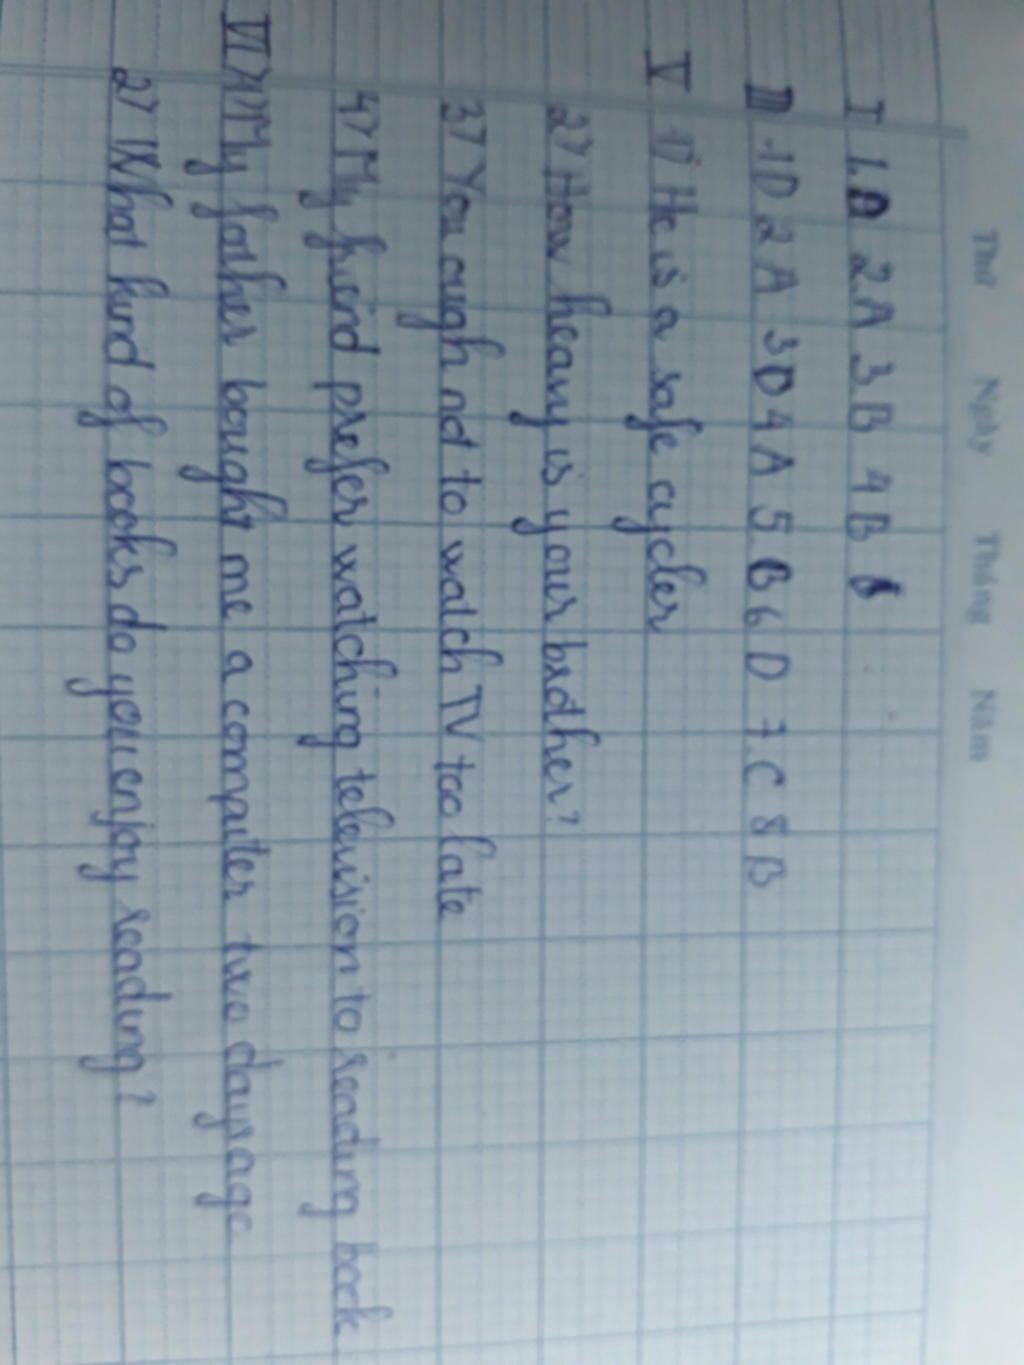 Thứ Ngày Tháng Năm
I 1.A 2A 3.B 4B
III 1D 2A 3D 4A 5.B 6D 7.C 8B
V 1) He is a safe cycler
2) How heavy is your brother?
3) You ough not to watch TV too late
4) My friend prefer watching television to reading book
VI 1) My father bought me a computer two days ago
2) What kind of books do you enjoy reading?